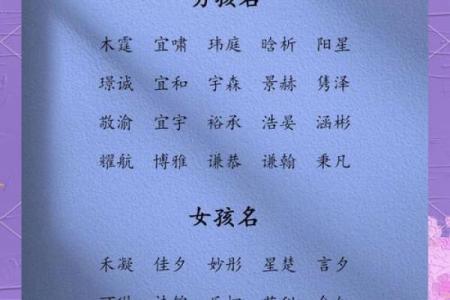 男孩名
木霆 宜啸 玮庭 晗析 阳星
璟诚 宜和 宇森 景赫 隽泽
敬渝 宜宇 裕承 浩晏 涵彬
耀航 博雅 谦恭 谦翰 秉凡
女孩名
禾凝 佳夕 妙彤 星楚 言夕